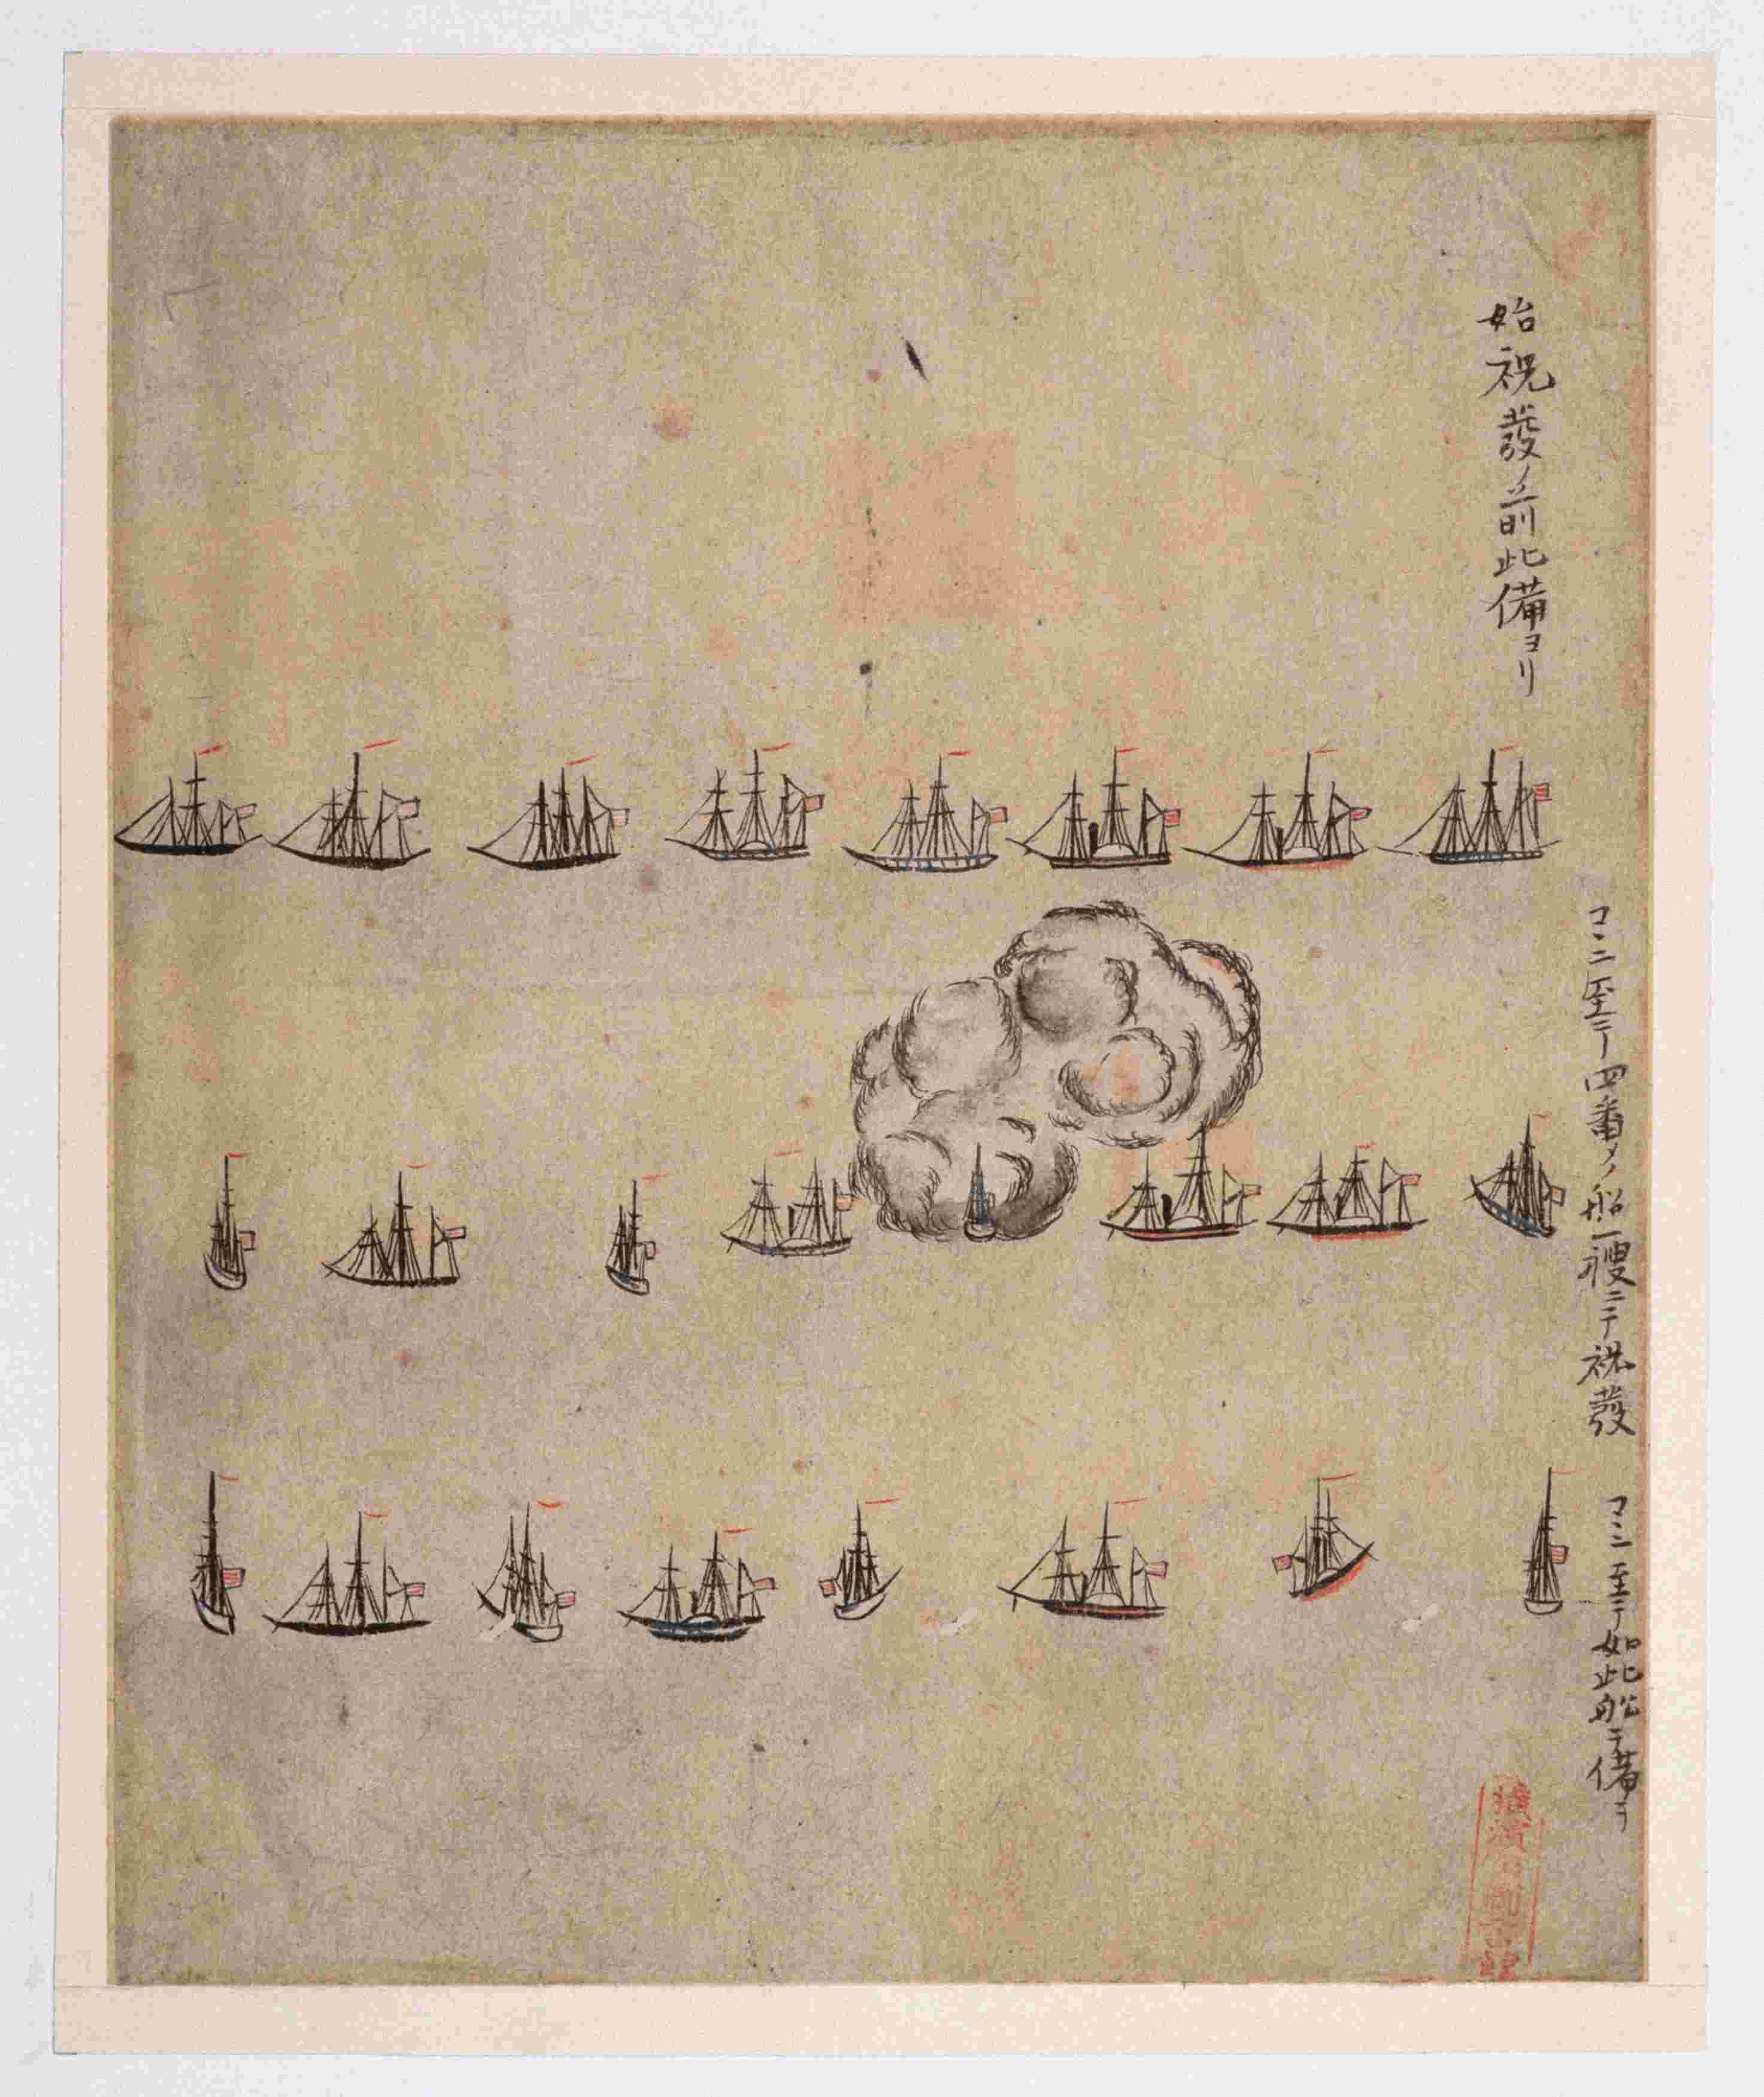 始祝發ノ前此備ヨリ
コヽニ至テ四番ノ船一艘ニテ祝發
コヽニ至テ如此船ヲ備フ
横濱